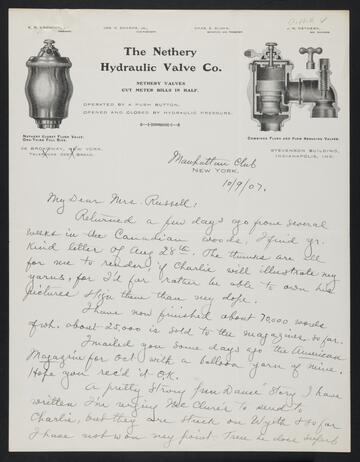 The Nethery
Hydraulic Valve Co.
NETHERY VALVES
CUT METER BILLS IN HALF.
OPERATED BY A PUSH BUTTON.
OPENED AND CLOSED BY HYDRAULIC PRESSURE.
NETHERY CLOSET FLUSH VALVE.
ONE-THIRD FULL SIZE.
BROADWAY, NEW YORK.
BROAD.
COMBINED FLUSH AND REDUCING VALVES.
STEVENSON BUILDING,
INDIANAPOLIS, IND.
Manhattan Club
NEW YORK.
10/9/07.
My Dear Mrs. Russell:
Returned a few days ago from several
weeks in the Canadian woods, & find yr.
kind letter of Aug 28th. The thanks are all
for me to render, if Charlie will illustrate my
yarns, for I'd far rather be able to own his
pictures & sign them than my dope.
I have now finished about 70,000 words
of wh. about 25,000 is sold to the magazines, so far.
I mailed you some days ago the American
Magazine for Oct with a balloon yarn of mine.
Hope you rec'd it O.K.
A pretty strong "Sun Dance" story I have
written I'm urging McClures to send to
Charlie, but they are stuck on Wyeth & so far
I have not won my point. True he does superb